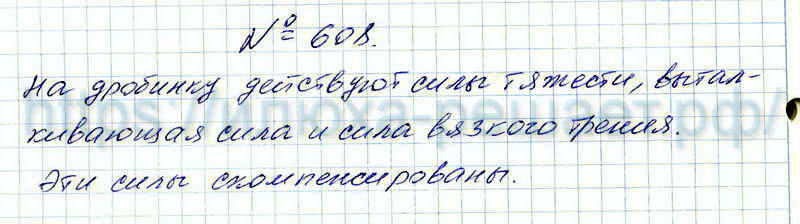 № 608.
На дробинку действуют силы тяжести, вытал-
кивающая сила и сила вязкого трения.
Эти силы скомпенсированы.